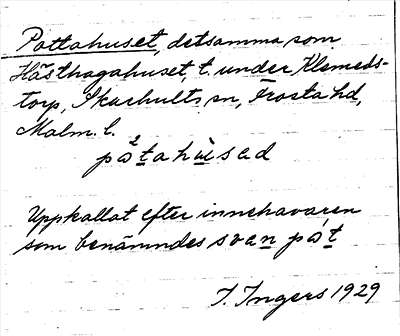 Pottahuset, detsamma som
Hästhagahuset, t. under Klemeds-
torp, Skarhults sn, Frosta hd,
Malm. l.
på²tahùsad
Uppkallat efter innehavaren
som benämndes svan påt
I. Ingers 1929